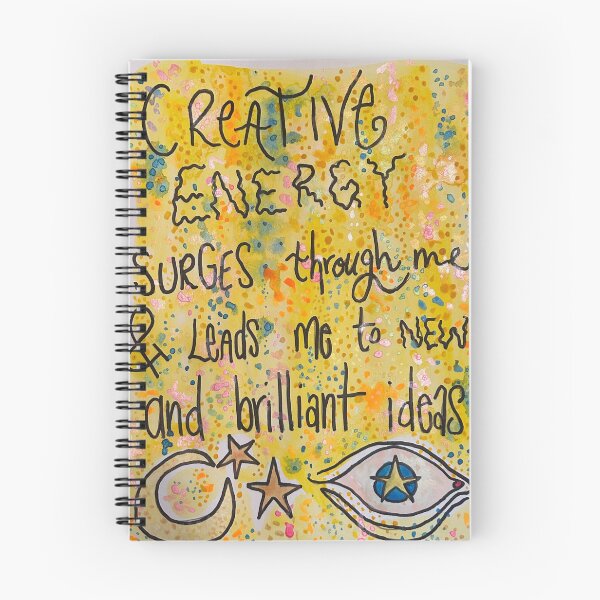 CREATIVE
ENERGY
SURGES through me
& LEADS me to NEW
and brilliant ideas